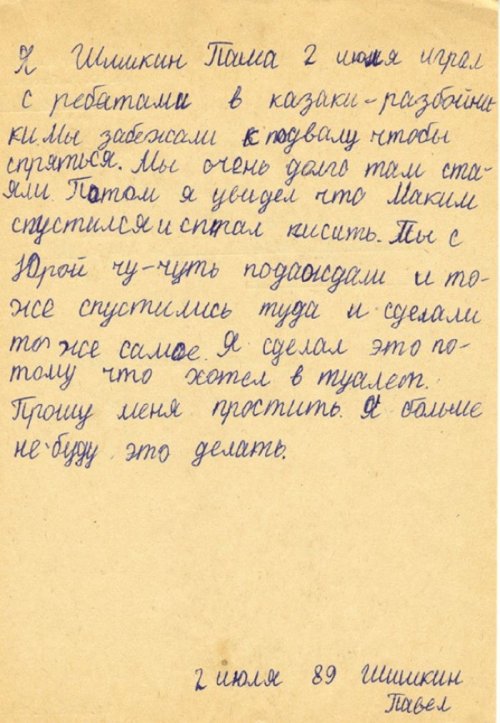 Я Шишкин Паша 2 июля играл
с ребятами в казаки-разбойни
ки. Мы забежали к подвалу чтобы
спряться. Мы очень долго там ста-
яли. Потом я увидел что Маким
спустился и стал писить. Мы с
Юрой чу-чуть подаждали и то-
же спустились туда и сделали
то же самое. Я сделал это по-
тому что хотел в туалет.
Прошу меня простить. Я больше
не буду это делать.
2 июля 89 Шишкин
Павел